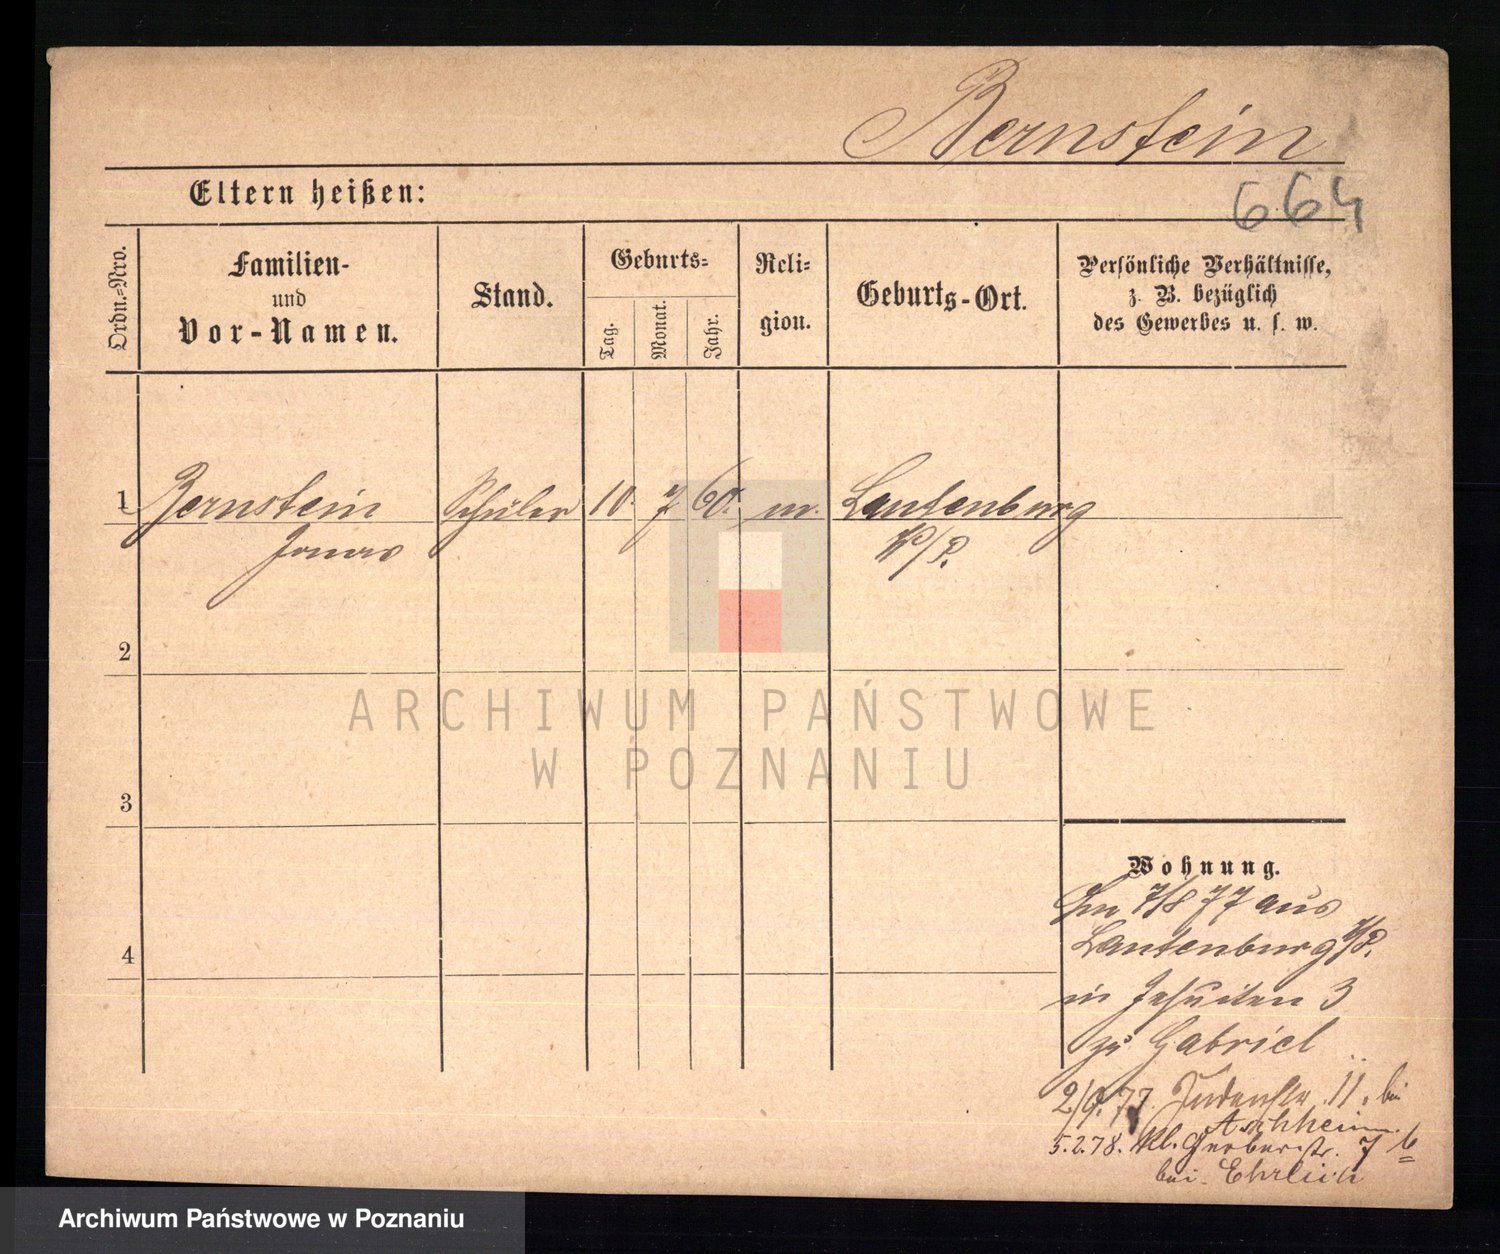 Bernstein
664
Eltern heißen:
Ordn.-Nro.
Familien-
und
Vor-Namen.
Stand.
Geburts-
Tag.
Monat.
Jahr.
Reli-
gion.
Geburts-Ort.
Persönliche Verhältnisse,
z. B. bezüglich
des Gewerbes u. s. w.
1 Bernstein Schüler 10. 7 60. m. Lautenburg
Jonas W/P.
2
ARCHIWUM PAŃSTWOWE
W POZNANIU
3
Wohnung.
7/8 77 aus
4
Lautenburg W/P.
in Jesuiten 3
zu Gabriel
2/9. 77. Judenstr. 11. bei
Aschheim.
5.2.78. Kl. Gerberstr. 7 b
bei Ehrlich
Archiwum Państwowe w Poznaniu